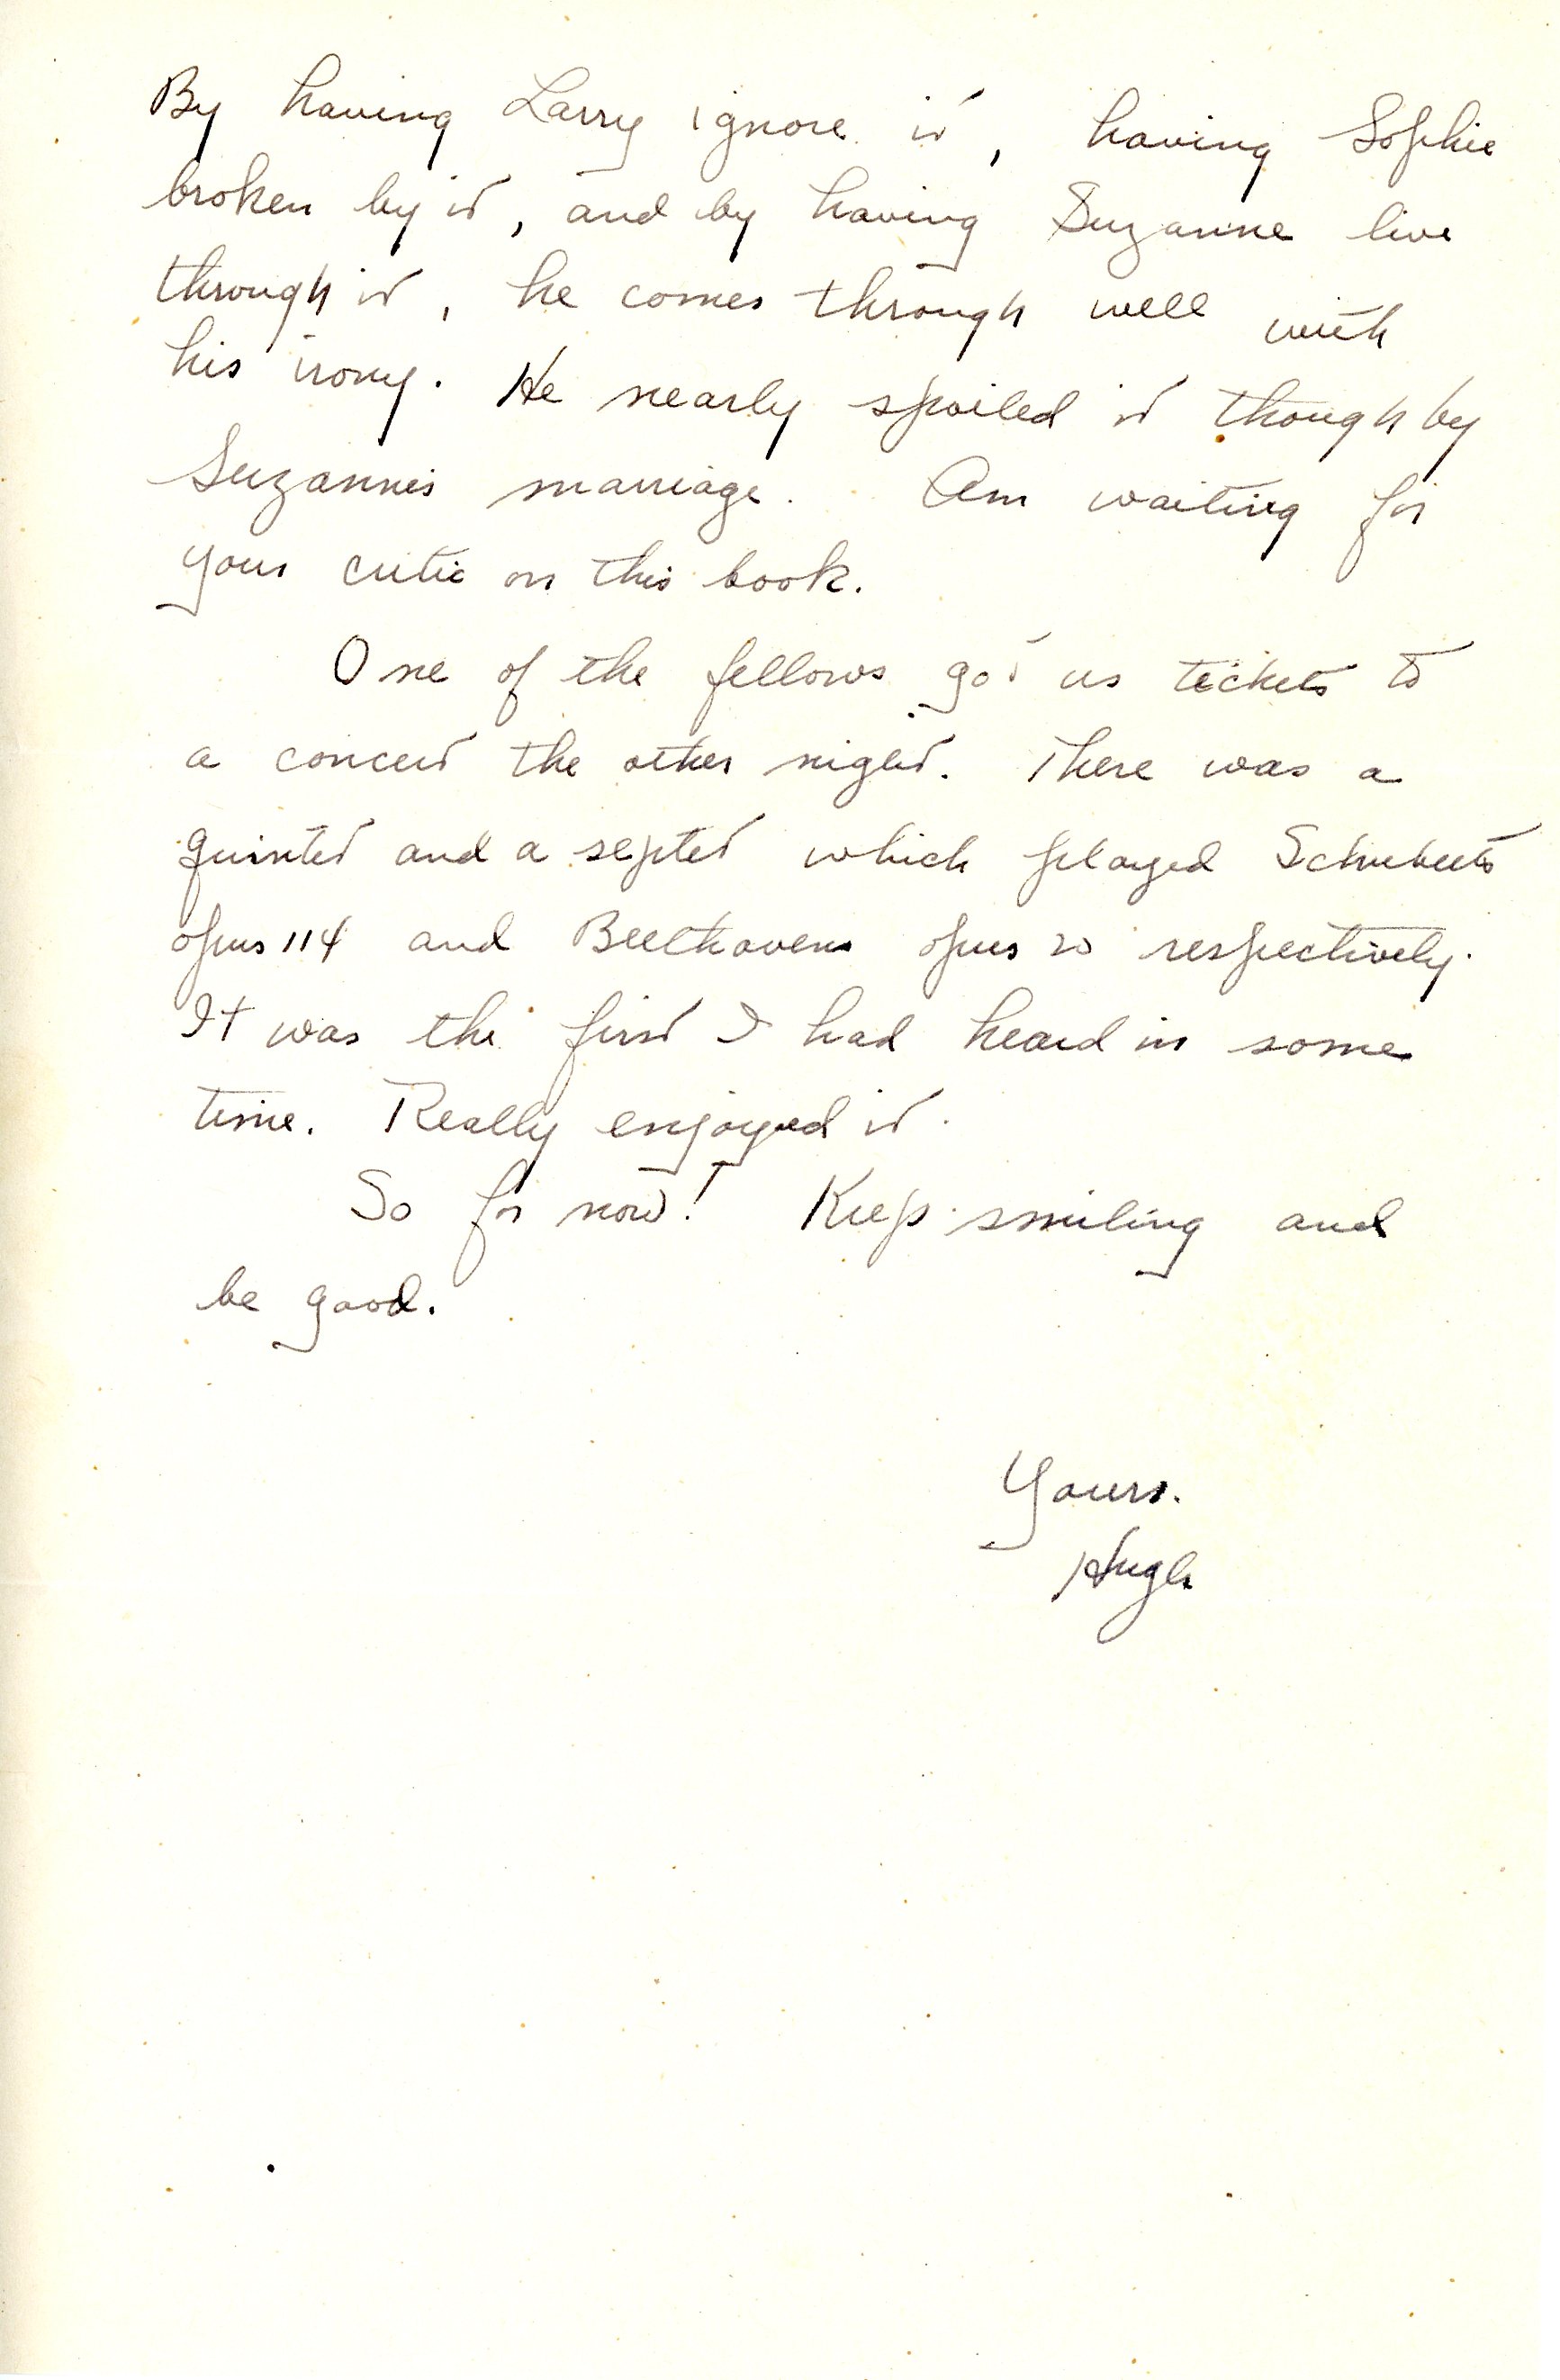 By having Larry ignore it, having Sophie
broken by it, and by having Suzanne live
through it, he comes through well with
his irony. He nearly spoiled it though by
Suzannes marriage. Am waiting for
your critic on this book.
One of the fellows got us tickets to
a concert the other night. There was a
quintet and a septet which played Schuberts
opus 114 and Beethovens opus 20 respectively.
It was the first I had heard in some
time. Really enjoyed it.
So for now! Keep smiling and
be good.
Yours.
Hugh